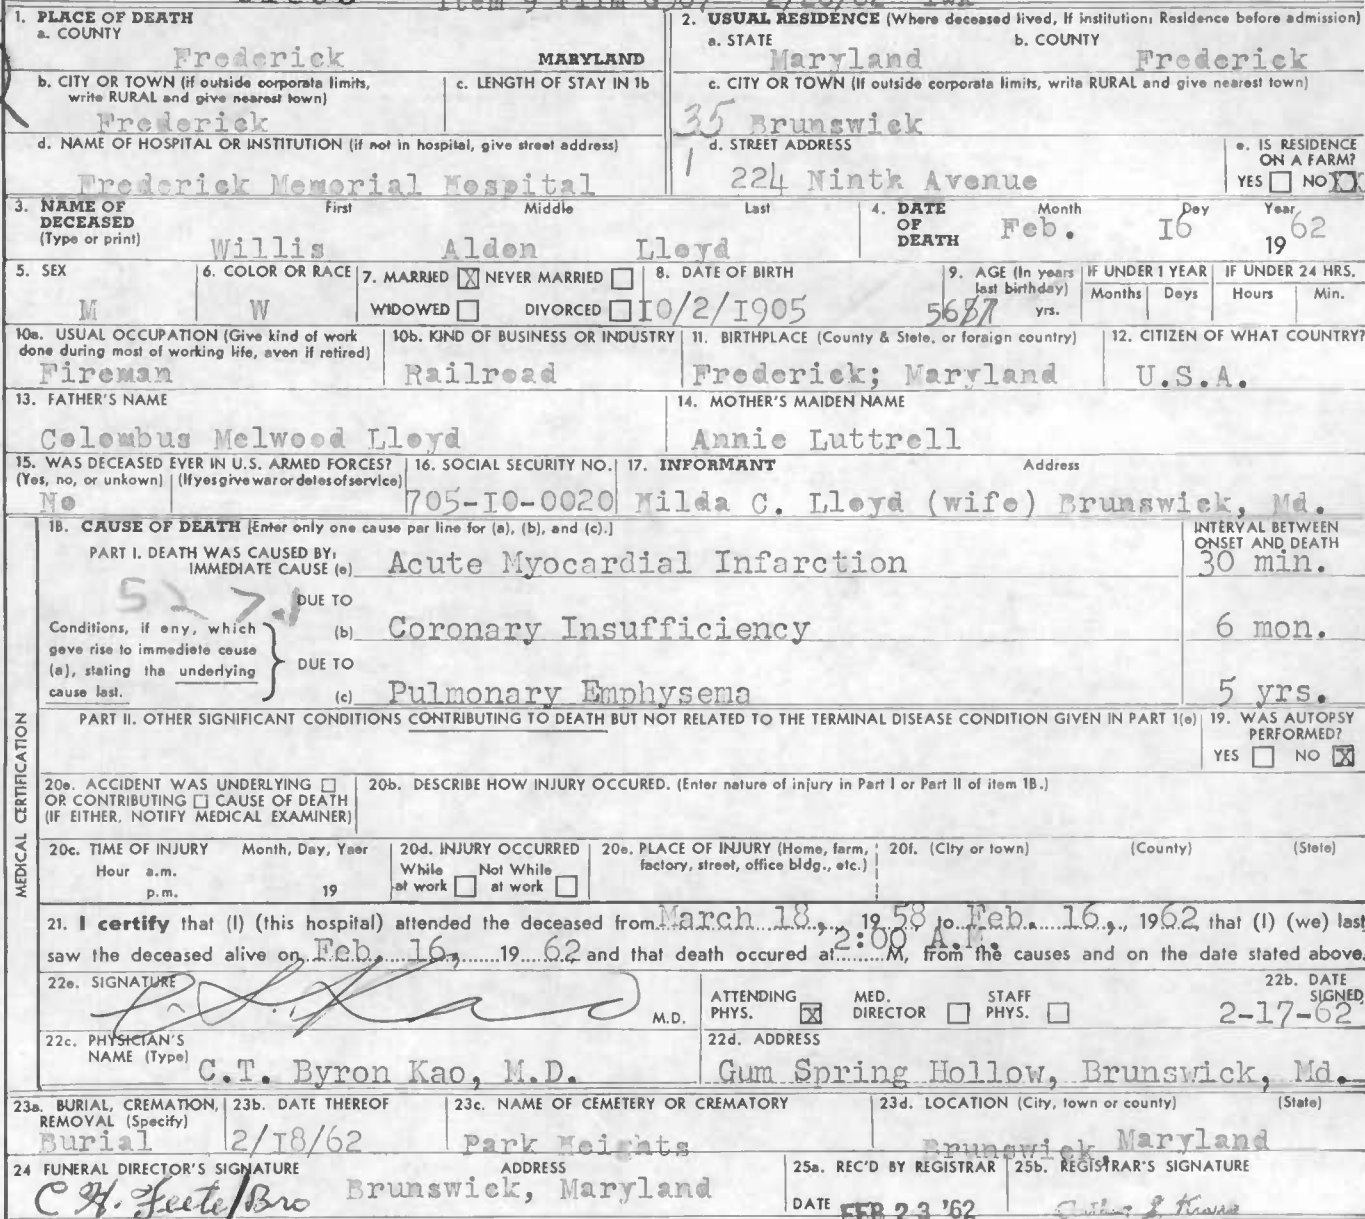 Item 9 Film G307 2/28/62 iwk
1. PLACE OF DEATH
a. COUNTY
Frederick MARYLAND
2. USUAL RESIDENCE (Where deceased lived, If institution: Residence before admission)
a. STATE b. COUNTY
Maryland Frederick
b. CITY OR TOWN (if outside corporate limits, write RURAL and give nearest town)
Frederick
c. LENGTH OF STAY IN 1b
c. CITY OR TOWN (If outside corporate limits, write RURAL and give nearest town)
35 Brunswick
d. NAME OF HOSPITAL OR INSTITUTION (if not in hospital, give street address)
Frederick Memorial Hospital
d. STREET ADDRESS
1 224 Ninth Avenue
e. IS RESIDENCE ON A FARM?
YES NO XX
3. NAME OF DECEASED (Type or print)
First Middle Last
Willis Alden Lloyd
4. DATE OF DEATH
Month Day Year
Feb. I6 1962
5. SEX
M
6. COLOR OR RACE
W
7. MARRIED X NEVER MARRIED
WIDOWED DIVORCED
8. DATE OF BIRTH
I0/2/I905
9. AGE (In years last birthday)
5687 yrs.
IF UNDER 1 YEAR
Months Days
IF UNDER 24 HRS.
Hours Min.
10a. USUAL OCCUPATION (Give kind of work done during most of working life, even if retired)
Fireman
10b. KIND OF BUSINESS OR INDUSTRY
Railroad
11. BIRTHPLACE (County & State, or foreign country)
Frederick; Maryland
12. CITIZEN OF WHAT COUNTRY?
U.S.A.
13. FATHER'S NAME
Colombus Melwood Lloyd
14. MOTHER'S MAIDEN NAME
Annie Luttrell
15. WAS DECEASED EVER IN U.S. ARMED FORCES?
(Yes, no, or unkown) (If yes give war or dates of service)
No
16. SOCIAL SECURITY NO.
705-I0-0020
17. INFORMANT Address
Hilda C. Lloyd (wife) Brunswick, Md.
18. CAUSE OF DEATH [Enter only one cause per line for (a), (b), and (c).]
INTERVAL BETWEEN ONSET AND DEATH
PART I. DEATH WAS CAUSED BY:
IMMEDIATE CAUSE (a) Acute Myocardial Infarction 30 min.
527.1
DUE TO
Conditions, if any, which gave rise to immediate cause (a), stating the underlying cause last.
(b) Coronary Insufficiency 6 mon.
DUE TO
(c) Pulmonary Emphysema 5 yrs.
PART II. OTHER SIGNIFICANT CONDITIONS CONTRIBUTING TO DEATH BUT NOT RELATED TO THE TERMINAL DISEASE CONDITION GIVEN IN PART 1(a)
19. WAS AUTOPSY PERFORMED?
YES NO X
MEDICAL CERTIFICATION
20a. ACCIDENT WAS UNDERLYING
OR CONTRIBUTING CAUSE OF DEATH
(IF EITHER, NOTIFY MEDICAL EXAMINER)
20b. DESCRIBE HOW INJURY OCCURED. (Enter nature of injury in Part I or Part II of item 18.)
20c. TIME OF INJURY Month, Day, Year
Hour a.m.
p.m. 19
20d. INJURY OCCURRED
While at work Not While at work
20e. PLACE OF INJURY (Home, farm, factory, street, office bldg., etc.)
20f. (City or town) (County) (State)
21. I certify that (I) (this hospital) attended the deceased from March 18, 1958 to Feb. 16, 1962 that (I) (we) last
saw the deceased alive on Feb. 16, 1962 and that death occured at 2:00 A.M. M, from the causes and on the date stated above.
22a. SIGNATURE
M.D.
ATTENDING PHYS. X MED. DIRECTOR STAFF PHYS.
22b. DATE SIGNED
2-17-62
22c. PHYSICIAN'S NAME (Type)
C.T. Byron Kao, M.D.
22d. ADDRESS
Gum Spring Hollow, Brunswick, Md.
23a. BURIAL, CREMATION, REMOVAL (Specify)
Burial
23b. DATE THEREOF
2/I8/62
23c. NAME OF CEMETERY OR CREMATORY
Park Heights
23d. LOCATION (City, town or county) (State)
Brunswick, Maryland
24 FUNERAL DIRECTOR'S SIGNATURE ADDRESS
C.H. Feete/Bro Brunswick, Maryland
25a. REC'D BY REGISTRAR
DATE FEB 23 '62
25b. REGISTRAR'S SIGNATURE